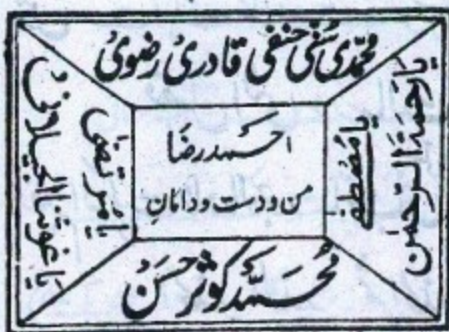 محمدی سُنی حنفی قادری رضوی
یارحمۃ الرحمٰن
یا مصطفےٰ
احمد رضا
من و دست و دامانِ
یا مرتضیٰ
یا غوثنا الجیلانی
محمد کوثر حسن